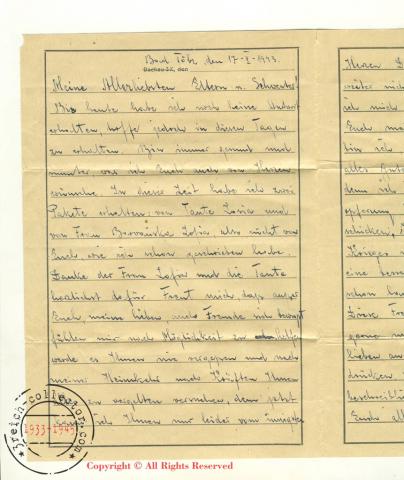 Bad Tölz, den 17-I-1943.
Dachau 3K, den
Meine Allerliebsten Eltern u. Schwester!
Bis heute habe ich noch keine Antwort
erhalten, hoffe jedoch in diesen Tagen
zu erhalten. Bin immer gesund und
munter was ich Euch auch von Herzen
wünsche. In dieser Zeit habe ich zwei
Pakete erhalten: von Tante Zosia und
von Frau Zofia, also nicht von
Euch wie ich schon geschrieben habe.
Danke der Frau Zofia und die Tante
herzlichst dafür. Freut mich, dass ausser
Euch meine lieben auch Freunde sich
fühlen mir nach Möglichkeit zu helfen
werde es Ihnen nie vergessen und nach
meine Heimkehr nach Kräften Ihnen
vergelten versuchen, denn jetzt
ich Ihnen nur leider vom innigsten
Herzen
weiter nicht
ich mich
Euch
bin ich
alles Gute
dem ich
opferung
schicken,
Krieges
eine
schon
Frau
ganz
lieben
drücken
Euch alle
3reich-collector.com
1933-1945
Copyright © All Rights Reserved